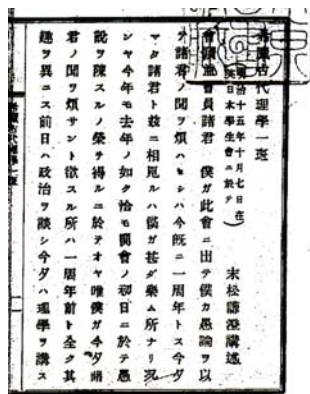 希臘古代理學一班
（明治十五年十月七日在
英日本學生會ニ於テ）
末松謙澄講述
會頭並會員諸君　僕ガ此會ニ出テ僕カ愚論ヲ以
テ諸君ノ聞ヲ煩ハセシハ今既ニ一周年トス今夕
マタ諸君ト玆ニ相見ルハ僕ガ甚ダ樂ム所ナリ況
ンヤ今年モ去年ノ如ク恰モ開會ノ初日ニ於テ愚
說ヲ陳スルノ榮ヲ得ルニ於テオヤ唯僕ガ今夕諸
君ノ聞ヲ煩サント欲スル所ハ一周年前ト全ク其
趣ヲ異ニス前日ハ政治ヲ談シ今夕ハ理學ヲ講ス